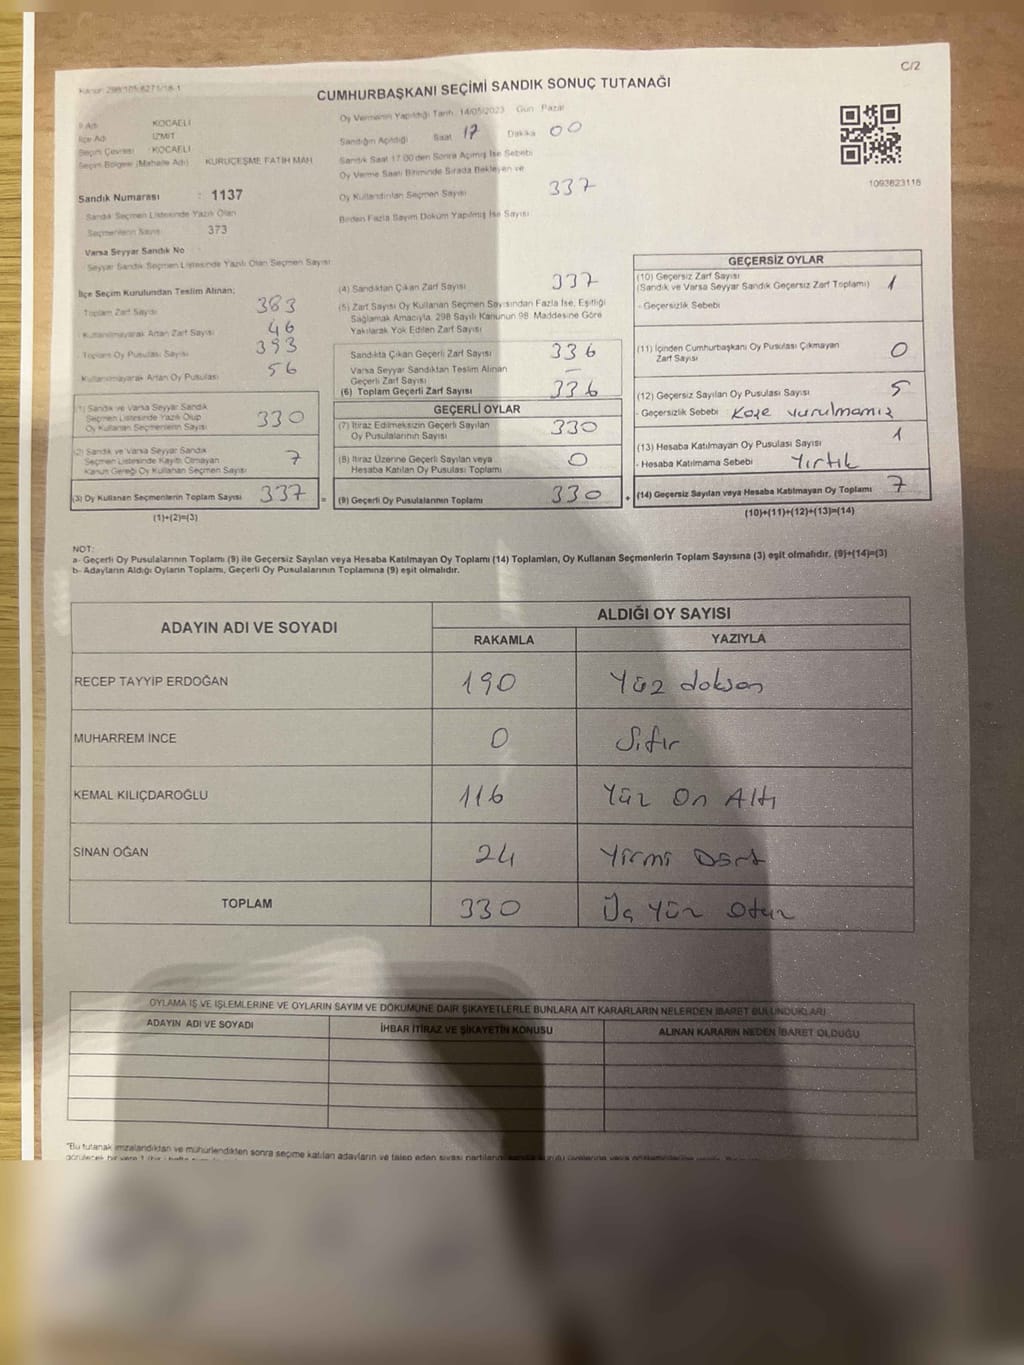 C/2
Kanun: 298/105-6271/18-1
CUMHURBAŞKANI SEÇİMİ SANDIK SONUÇ TUTANAĞI
İl Adı KOCAELİ
İlçe Adı İZMİT
Seçim Çevresi KOCAELİ
Seçim Bölgesi (Mahalle Adı) KURUÇEŞME FATİH MAH
Sandık Numarası : 1137
Sandık Seçmen Listesinde Yazılı Olan
Seçmenlerin Sayısı 373
Varsa Seyyar Sandık No
Seyyar Sandık Seçmen Listesinde Yazılı Olan Seçmen Sayısı
Oy Vermenin Yapıldığı Tarih: 14/05/2023 Gün Pazar
Sandığın Açıldığı Saat 17 Dakika 00
Sandık Saat 17.00'den Sonra Açılmış İse Sebebi
Oy Verme Saati Bitiminde Sırada Bekleyen ve
Oy Kullandırılan Seçmen Sayısı 337
Birden Fazla Sayım Döküm Yapılmış İse Sayısı
1093623118
İlçe Seçim Kurulundan Teslim Alınan;
Toplam Zarf Sayısı 383
Kullanılmayarak Artan Zarf Sayısı 46
Toplam Oy Pusulası Sayısı 393
Kullanılmayarak Artan Oy Pusulası 56
(1) Sandık ve Varsa Seyyar Sandık
Seçmen Listesinde Yazılı Olup
Oy Kullanan Seçmenlerin Sayısı 330
(2) Sandık ve Varsa Seyyar Sandık
Seçmen Listesinde Kayıtlı Olmayan
Kanun Gereği Oy Kullanan Seçmen Sayısı 7
(3) Oy Kullanan Seçmenlerin Toplam Sayısı 337 =
(1)+(2)=(3)
(4) Sandıktan Çıkan Zarf Sayısı 337
(5) Zarf Sayısı Oy Kullanan Seçmen Sayısından Fazla İse, Eşitliği
Sağlamak Amacıyla, 298 Sayılı Kanunun 98. Maddesine Göre
Yakılarak Yok Edilen Zarf Sayısı
Sandıkta Çıkan Geçerli Zarf Sayısı 336
Varsa Seyyar Sandıktan Teslim Alınan
Geçerli Zarf Sayısı –
(6) Toplam Geçerli Zarf Sayısı 336
GEÇERLİ OYLAR
(7) İtiraz Edilmeksizin Geçerli Sayılan
Oy Pusulalarının Sayısı 330
(8) İtiraz Üzerine Geçerli Sayılan veya
Hesaba Katılan Oy Pusulası Toplamı 0
(9) Geçerli Oy Pusulalarının Toplamı 330 +
GEÇERSİZ OYLAR
(10) Geçersiz Zarf Sayısı
(Sandık ve Varsa Seyyar Sandık Geçersiz Zarf Toplamı) 1
- Geçersizlik Sebebi
(11) İçinden Cumhurbaşkanı Oy Pusulası Çıkmayan
Zarf Sayısı 0
(12) Geçersiz Sayılan Oy Pusulası Sayısı 5
- Geçersizlik Sebebi Kaşe vurulmamış
(13) Hesaba Katılmayan Oy Pusulası Sayısı 1
- Hesaba Katılmama Sebebi Yırtık
(14) Geçersiz Sayılan veya Hesaba Katılmayan Oy Toplamı 7
(10)+(11)+(12)+(13)=(14)
NOT:
a- Geçerli Oy Pusulalarının Toplamı (9) ile Geçersiz Sayılan veya Hesaba Katılmayan Oy Toplamı (14) Toplamları, Oy Kullanan Seçmenlerin Toplam Sayısına (3) eşit olmalıdır. (9)+(14)=(3)
b- Adayların Aldığı Oyların Toplamı, Geçerli Oy Pusulalarının Toplamına (9) eşit olmalıdır.
ADAYIN ADI VE SOYADI
ALDIĞI OY SAYISI
RAKAMLA YAZIYLA
RECEP TAYYİP ERDOĞAN 190 Yüz doksan
MUHARREM İNCE 0 Sıfır
KEMAL KILIÇDAROĞLU 116 Yüz On Altı
SİNAN OĞAN 24 Yirmi Dört
TOPLAM 330 Üç Yüz Otuz
OYLAMA İŞ VE İŞLEMLERİNE VE OYLARIN SAYIM VE DÖKÜMÜNE DAİR ŞİKAYETLERLE BUNLARA AİT KARARLARIN NELERDEN İBARET BULUNDUKLARI
ADAYIN ADI VE SOYADI İHBAR İTİRAZ VE ŞİKAYETİN KONUSU ALINAN KARARIN NEDEN İBARET OLDUĞU
"Bu tutanak imzalandıktan ve mühürlendikten sonra seçime katılan adayların ve talep eden siyasi partilerin